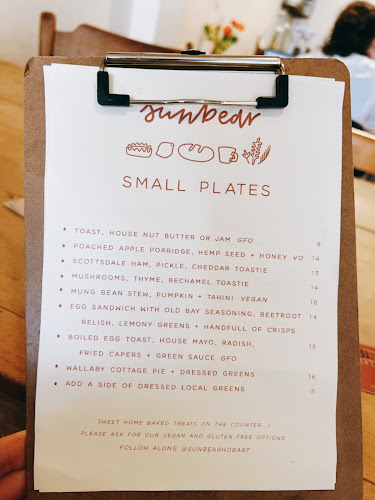 sunbear
SMALL PLATES
• TOAST, HOUSE NUT BUTTER OR JAM GFO 9
• POACHED APPLE PORRIDGE, HEMP SEED + HONEY VO 14
• SCOTTSDALE HAM, PICKLE, CHEDDAR TOASTIE 13
• MUSHROOMS, THYME, BECHAMEL TOASTIE 14
• MUNG BEAN STEW, PUMPKIN + TAHINI VEGAN 16
• EGG SANDWICH WITH OLD BAY SEASONING, BEETROOT 14
RELISH, LEMONY GREENS + HANDFULL OF CRISPS
• BOILED EGG TOAST, HOUSE MAYO, RADISH, 15
FRIED CAPERS + GREEN SAUCE GFO
• WALLABY COTTAGE PIE + DRESSED GREENS 16
• ADD A SIDE OF DRESSED LOCAL GREENS 5
SWEET HOME BAKED TREATS ON THE COUNTER :)
PLEASE ASK FOR OUR VEGAN AND GLUTEN FREE OPTIONS
FOLLOW ALONG @SUNBEARHOBART